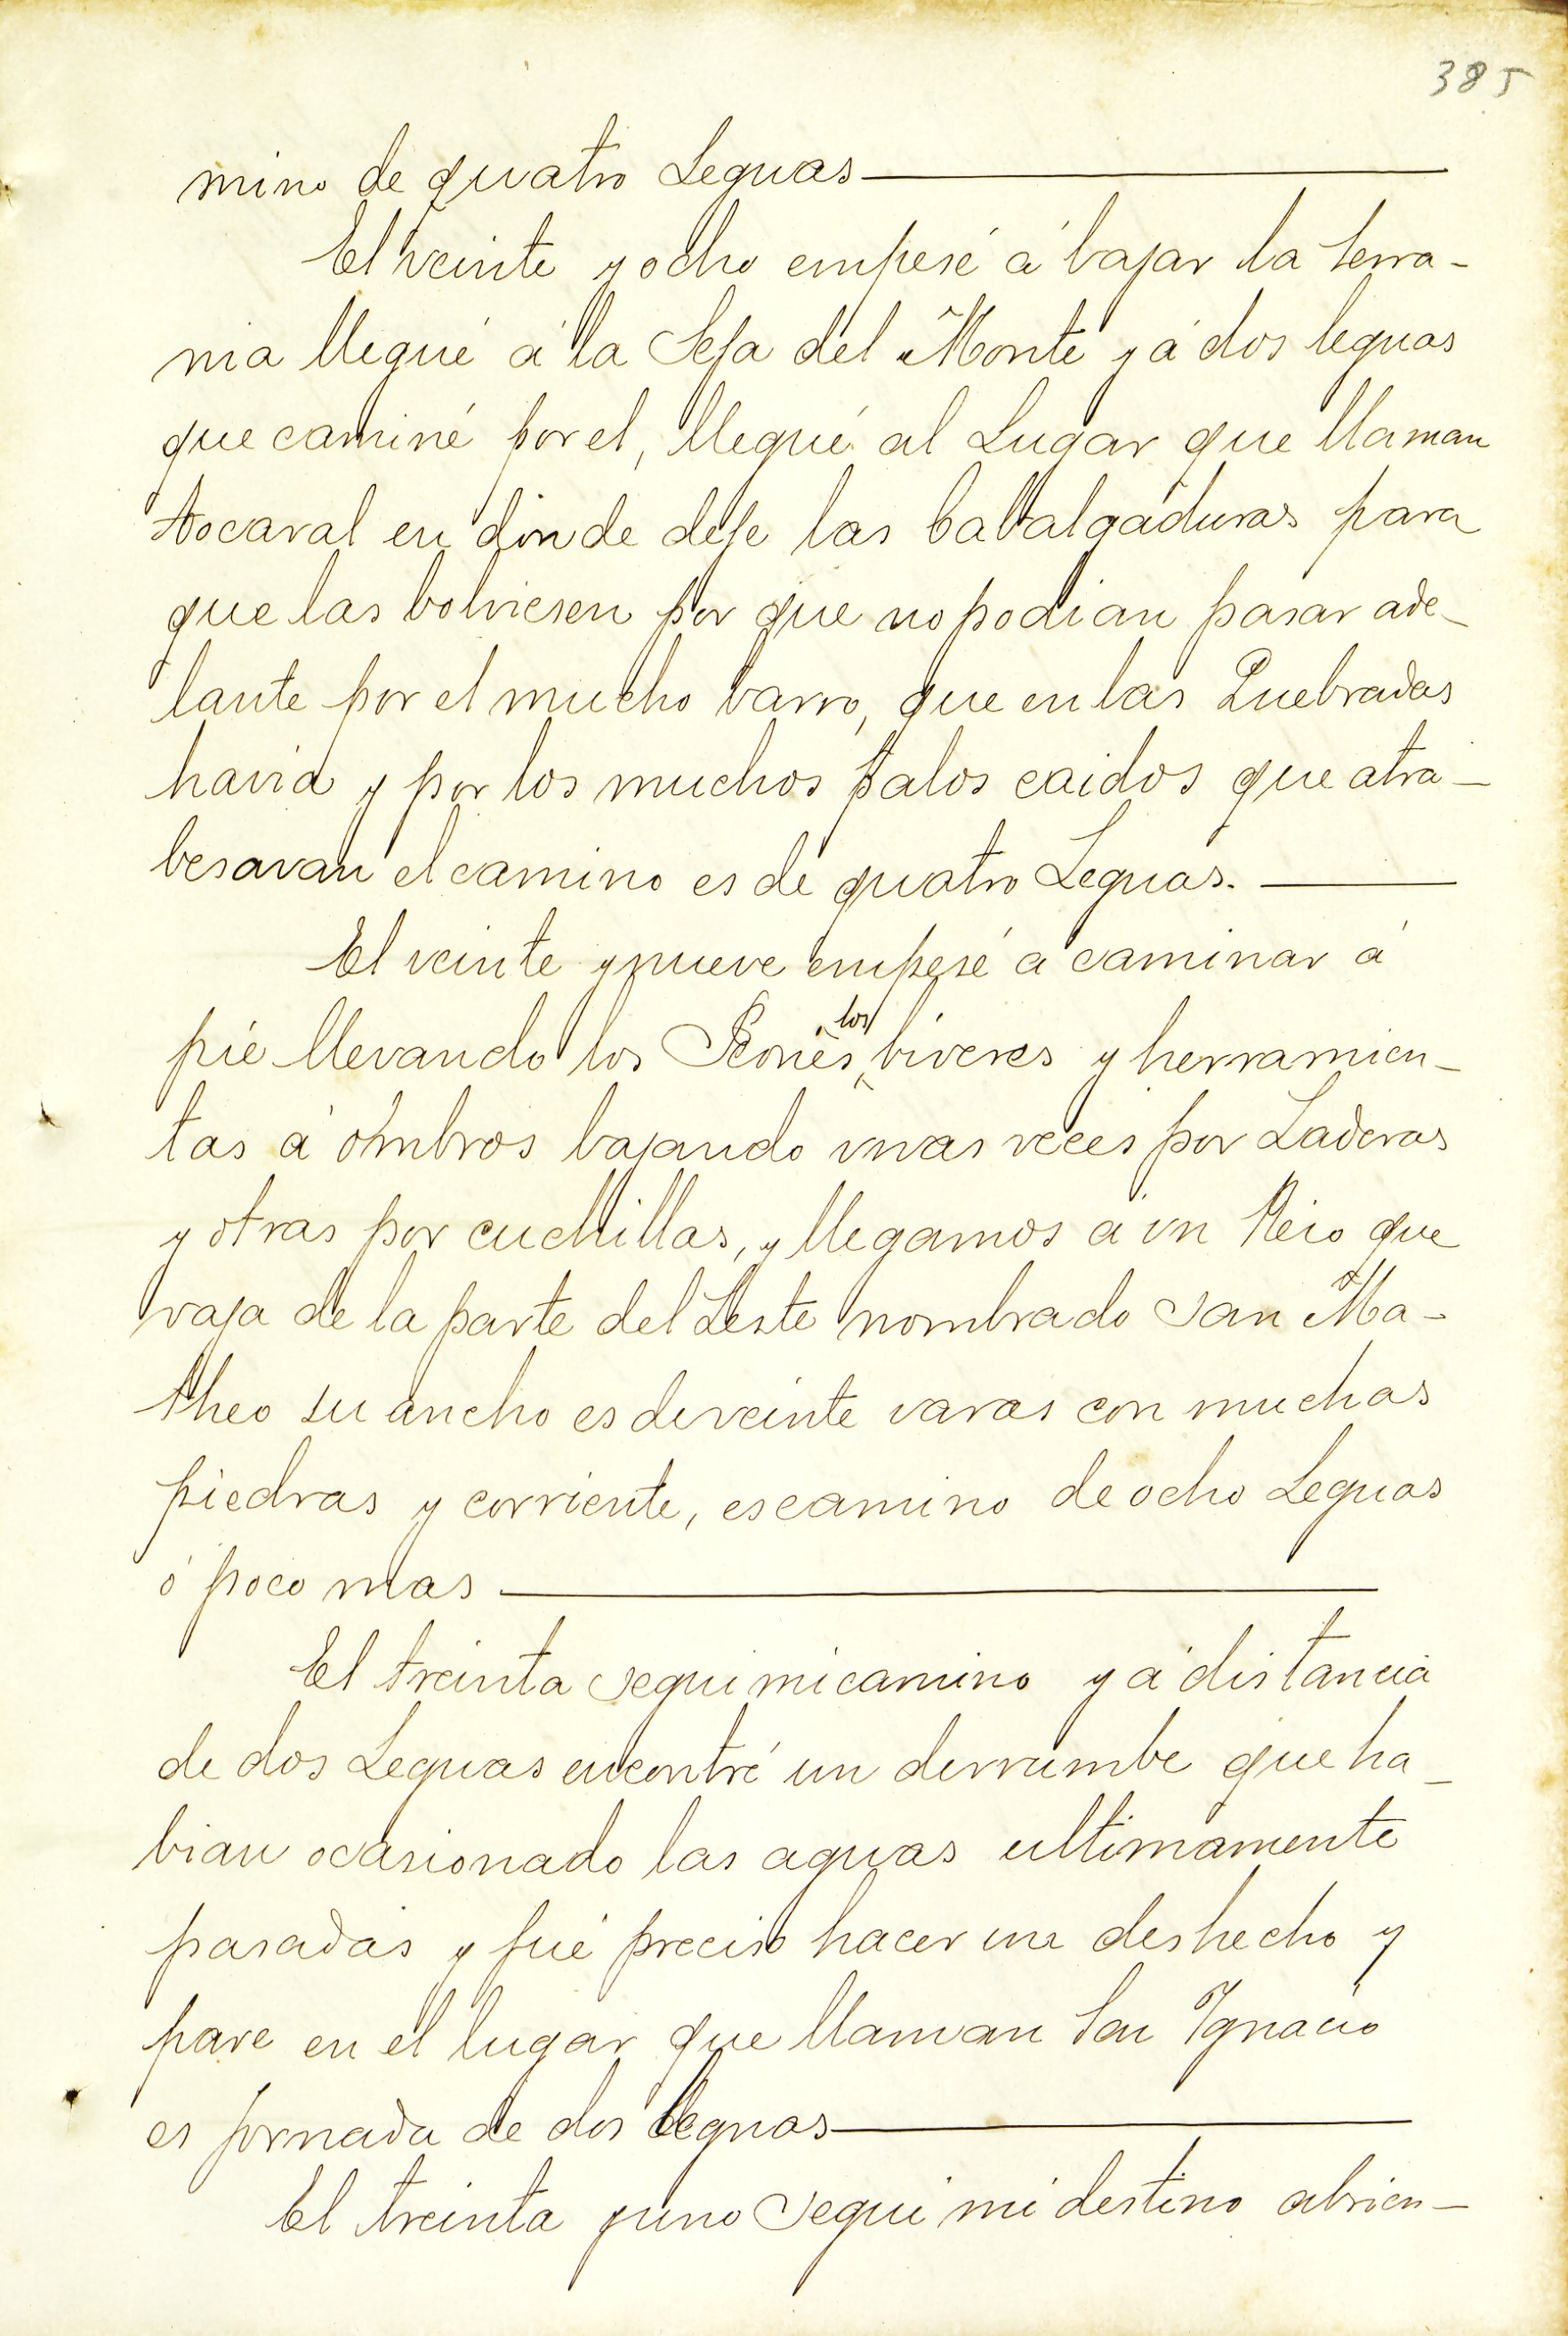 385
mino de quatro Leguas
El veinte y ocho empesé á bajar la Serra-
nia llegué á la Seja del Monte y á dos leguas
que caminé por el, llegué al Lugar que llaman
Aocaral en donde deje las Cabalgaduras para
que las bolviesen por que no podian pasar ade-
lante por el mucho barro, que en las Quebradas
havia y por los muchos palos caidos que atra-
besavan el camino es de quatro Leguas.
El veinte y nueve empesé á caminar á
pie llevando los Peones los viveres y herramien-
tas á ombros bajando unas veces por Laderas
y otras por cuchillas, y llegamos á un Rio que
vaja de la parte del Leste nombrado San Ma-
theo su ancho es de veinte varas con muchas
piedras y corriente, es camino de ocho Leguas
ó poco mas
El treinta segui mi camino y á distancia
de dos Leguas encontré un derrumbe que ha-
bian ocasionado las aguas ultimamente
pasadas y fué preciso hacer un deshecho y
pare en el lugar que llaman San Ignacio
es jornada de dos leguas
El treinta y uno segui mi destino abrien-